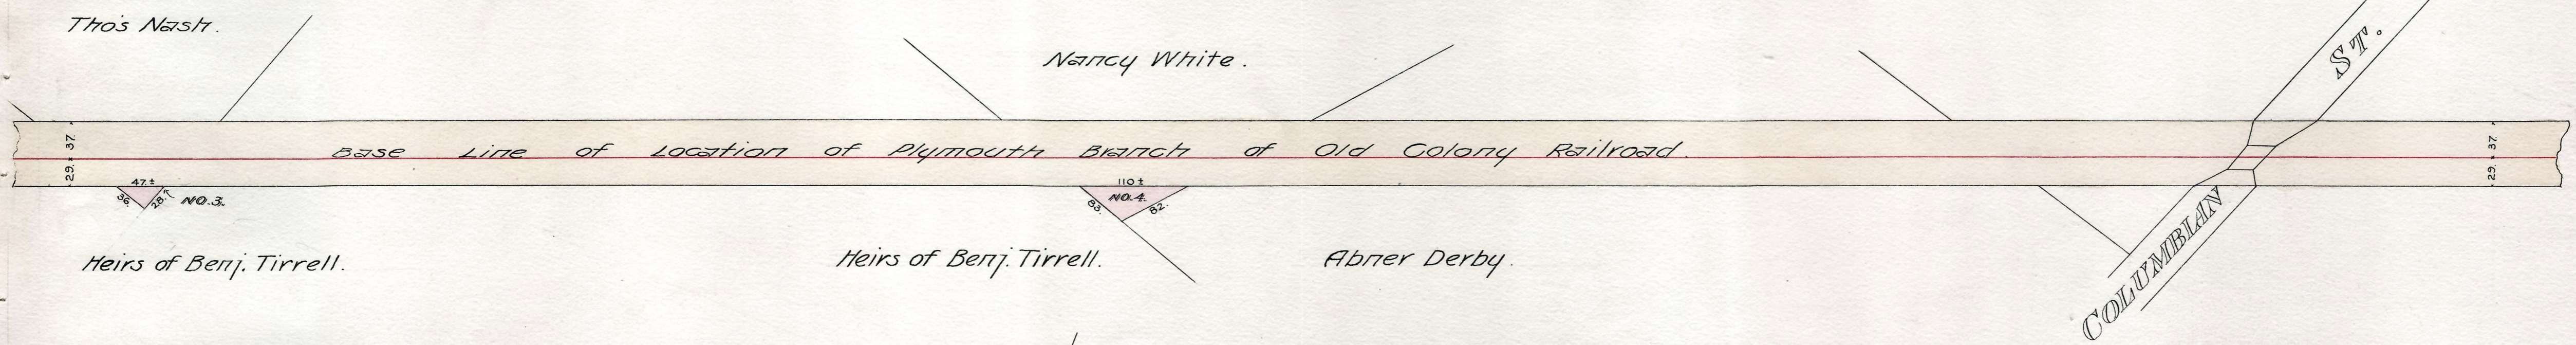 Tho's Nash.
Nancy White.
ST.
37.
29.
Base Line of Location of Plymouth Branch of Old Colony Railroad.
37.
29.
47.±
36.
28.
NO.3.
110±
NO.4.
83.
82.
COLUMBIAN
Heirs of Benj. Tirrell.
Heirs of Benj. Tirrell.
Abner Derby.